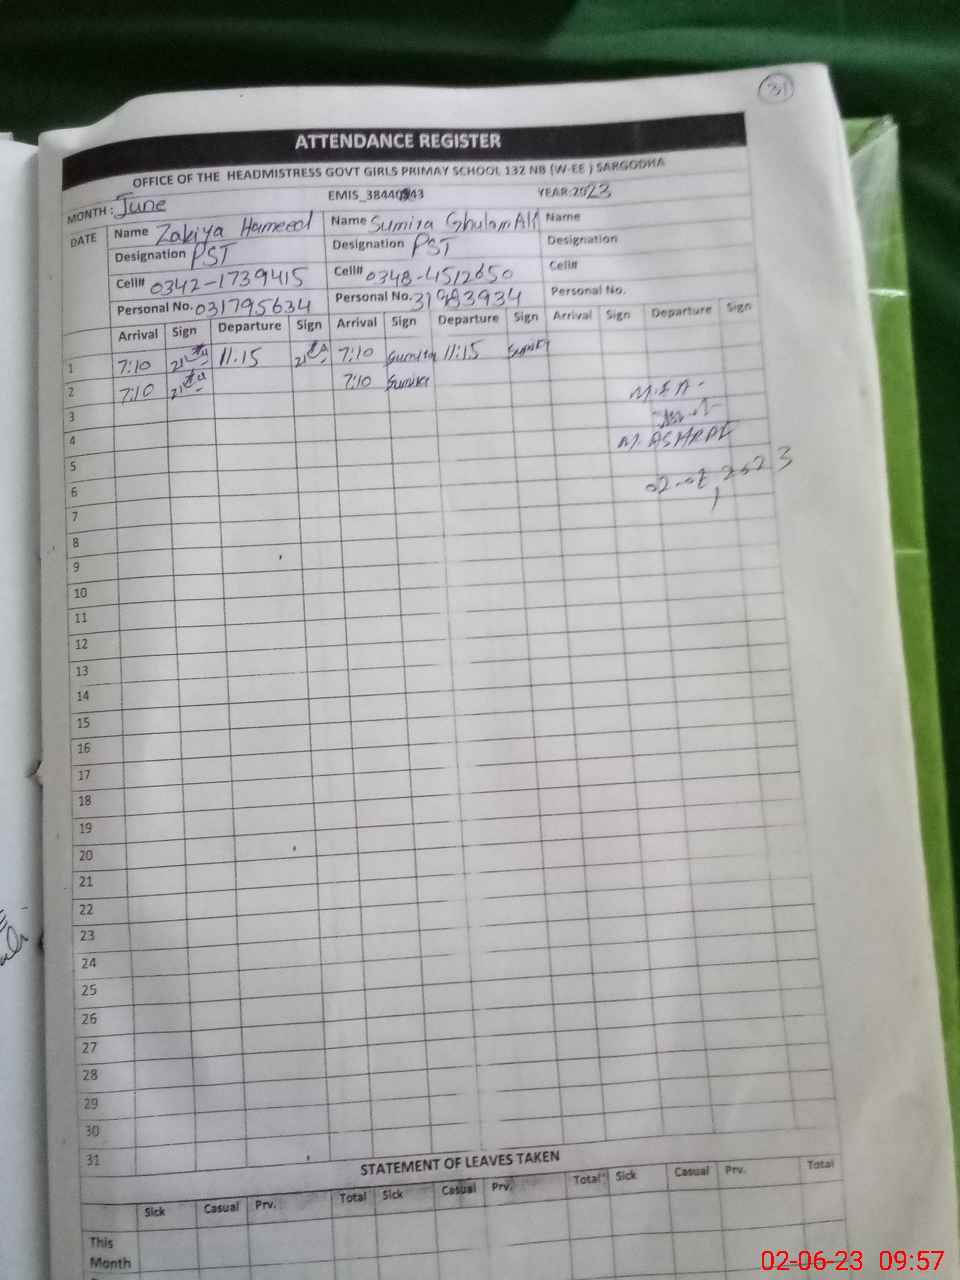 31
ATTENDANCE REGISTER
OFFICE OF THE HEADMISTRESS GOVT GIRLS PRIMAY SCHOOL 132 NB (W-EE ) SARGODHA
MONTH : June EMIS_38440 43 YEAR:2023
DATE Name Zakiya Hameed Name Sumira Ghulam Ali Name
Designation PST Designation PST Designation
Cell# 0342-1739415 Cell# 0348-4512650 Cell#
Personal No. 031795634 Personal No. Personal No.
Arrival Sign Departure Sign Arrival Sign Departure Sign Arrival Sign Departure Sign
1 7:10 11:15 7:10 Sumira 11:15 Sumira
2 7:10 7:10 Sumira M.E.A.
3
4 M. ASHRAF
5
6 2023
7
8
9
10
11
12
13
14
15
16
17
18
19
20
21
22
23
24
25
26
27
28
29
30
31
STATEMENT OF LEAVES TAKEN
Sick Casual Prv. Total Sick Casual Prv. Total Sick Casual Prv. Total
This
Month
02-06-23 09:57